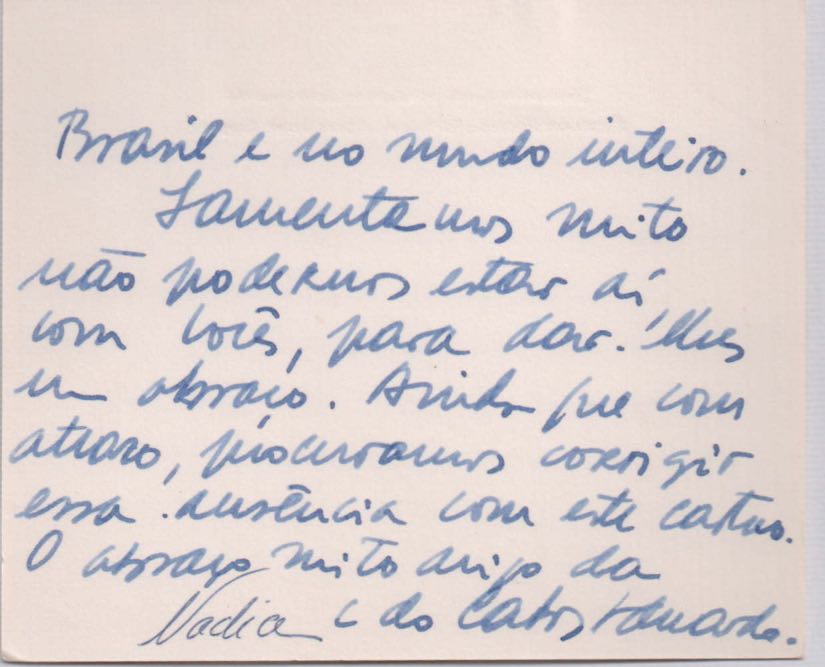 Brasil e no mundo inteiro.
Lamentamos muito
não podermos estar aí
com vocês, para dar-lhes
um abraço. Ainda que com
atraso, procuramos corrigir
essa ausência com este cartão.
O abraço muito amigo da
Nadia e do Carlos Eduardo.